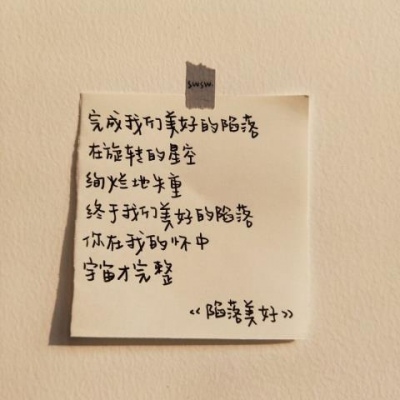 swsw.
完成我们美好的陷落
在旋转的星空
绚烂地失重
终于我们美好的陷落
你在我的怀中
宇宙才完整
《陷落美好》